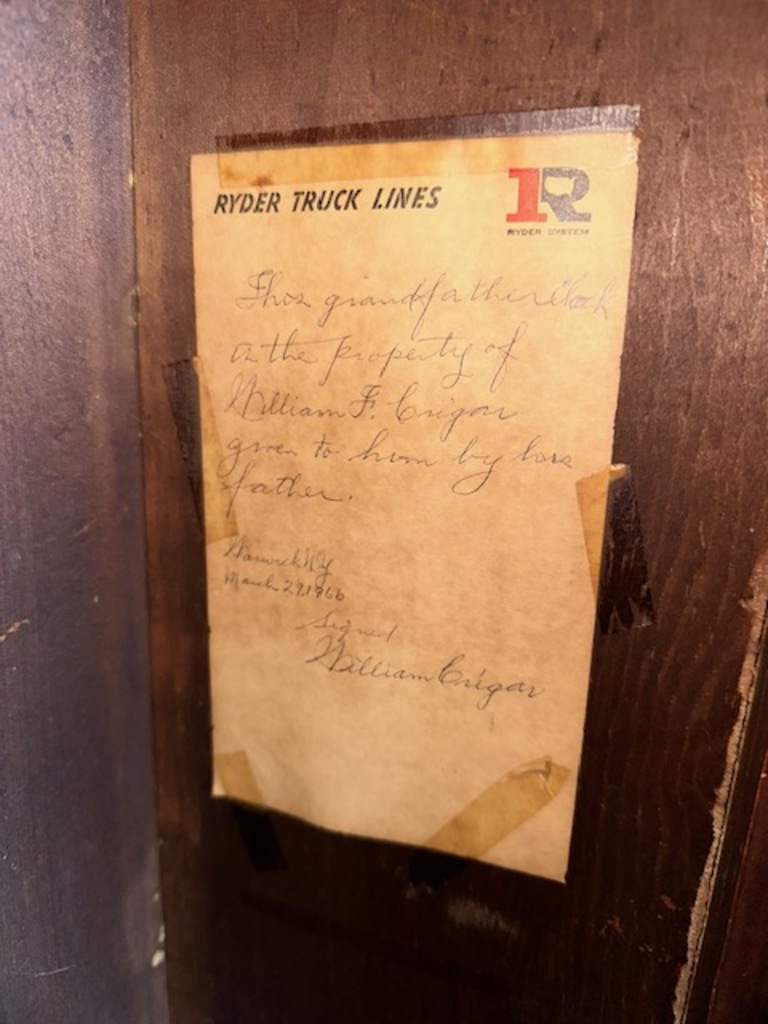 RYDER TRUCK LINES
R
RYDER SYSTEM
This grandfather clock
is the property of
William F. Crigar
given to him by his
father.
Warwick NY
March 29, 1966
Signed
William Crigar